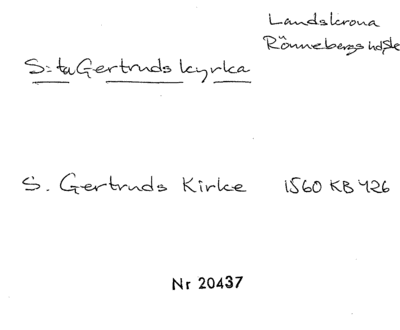 Landskrona
Rönnebergs hd, Sk
S:ta Gertruds kyrka
S. Gertruds Kirke 1560 KB 426
Nr 20437